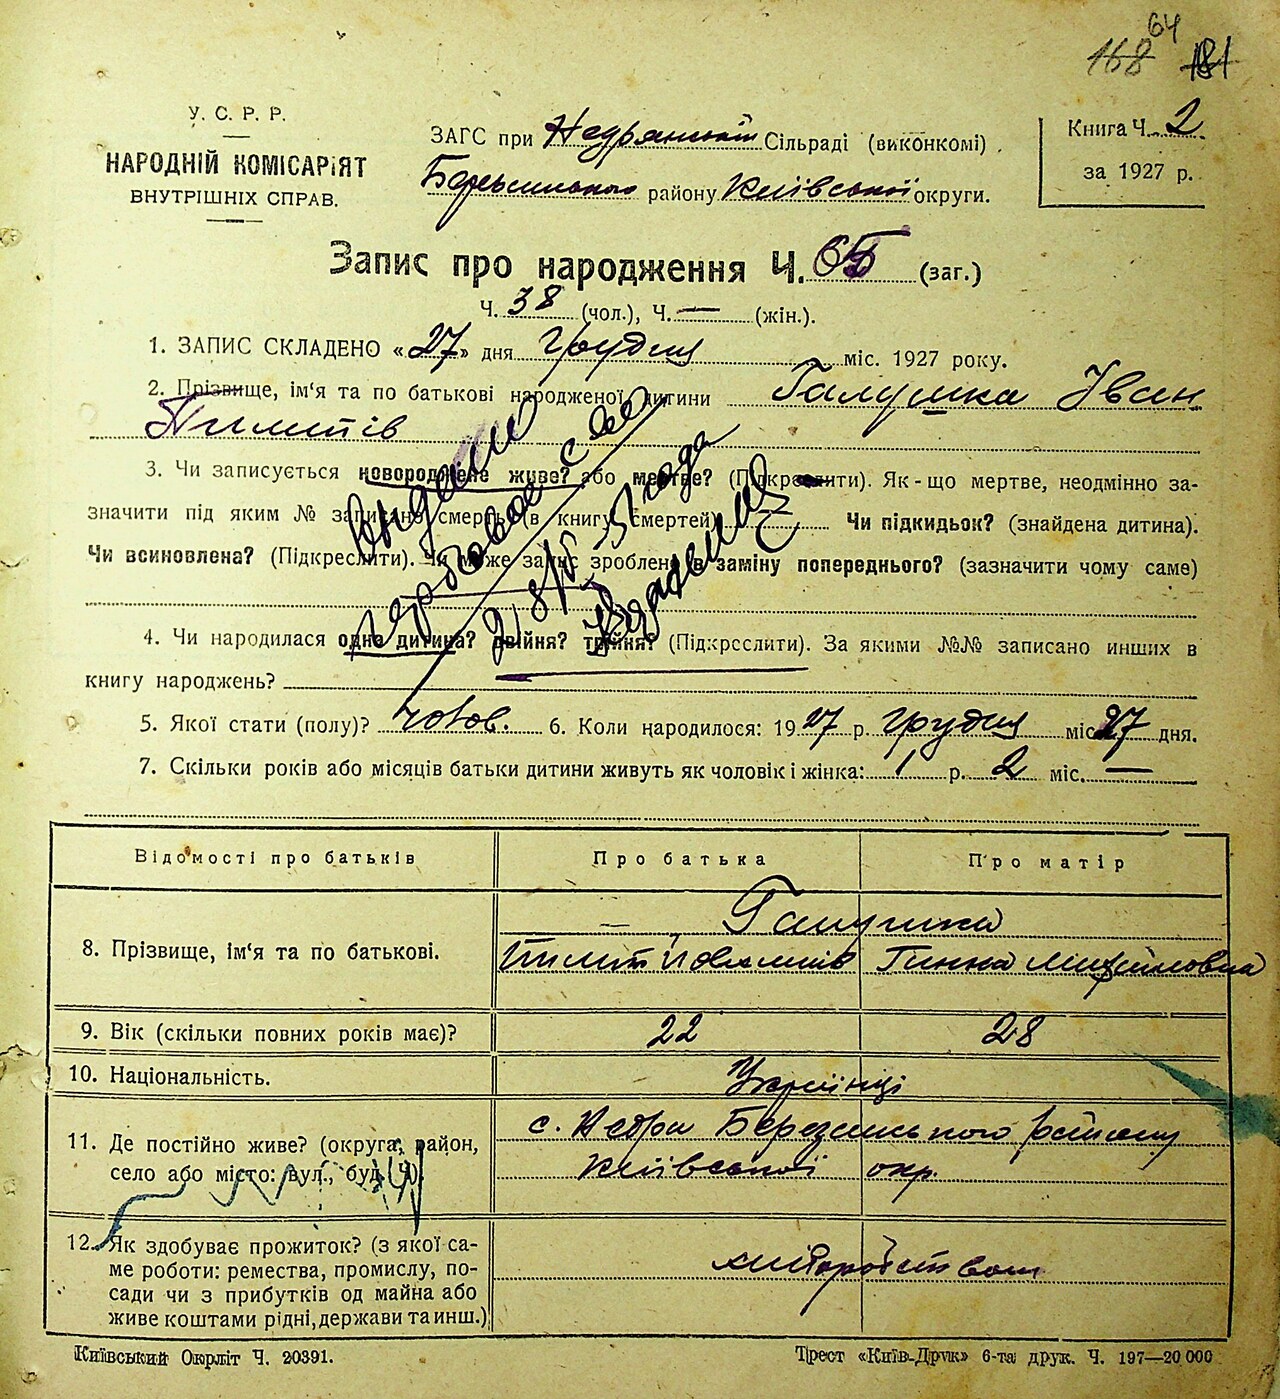 64
168 181
У. С. Р. Р.
НАРОДНІЙ КОМІСАРІЯТ
ВНУТРІШНІХ СПРАВ.
ЗАГС при Недранській Сільраді (виконкомі).
Березанського району Київської округи.
Книга Ч. 2
за 1927 р.
Запис про народження Ч. 65 (заг.)
Ч. 38 (чол.), Ч. — (жін.).
1. ЗАПИС СКЛАДЕНО «27» дня Грудня міс. 1927 року.
2. Прізвище, ім'я та по батькові народженої дитини Галушка Іван
Пилипів
3. Чи записується новороджене живе? або мертве? (Підкреслити). Як-що мертве, неодмінно за-
значити під яким № записано смерть (в книгу смертей) Чи підкидьок? (знайдена дитина).
Чи всиновлена? (Підкреслити). Чи може запис зроблено в заміну попереднього? (зазначити чому саме)
Выдано
гербовое с-во
28/IV-51 года
4. Чи народилася одна дитина? двійня? трійня? (Підкреслити). За якими №№ записано инших в
книгу народжень?
5. Якої стати (полу)? чолов. 6. Коли народилося: 1927 р. Грудня міс. 27 дня.
7. Скільки років або місяців батьки дитини живуть як чоловік і жінка: 1 р. 2 міс. —
Відомості про батьків Про батька Про матір
— Галушка
8. Прізвище, ім'я та по батькові.
Пилип Ганна Михайловна
9. Вік (скільки повних років має)? 22 28
10. Національність. Українці
11. Де постійно живе? (округа, район, с. Недра Березанського району
село або місто: вул., буд. Ч). Київської окр.
12. Як здобуває прожиток? (з якої са-
ме роботи: ремества, промислу, по- хліборобством
сади чи з прибутків од майна або
живе коштами рідні, держави та инш.)
Київський Окрліт Ч. 20391. Трест «Київ-Друк» 6-та друк. Ч. 197—20 000